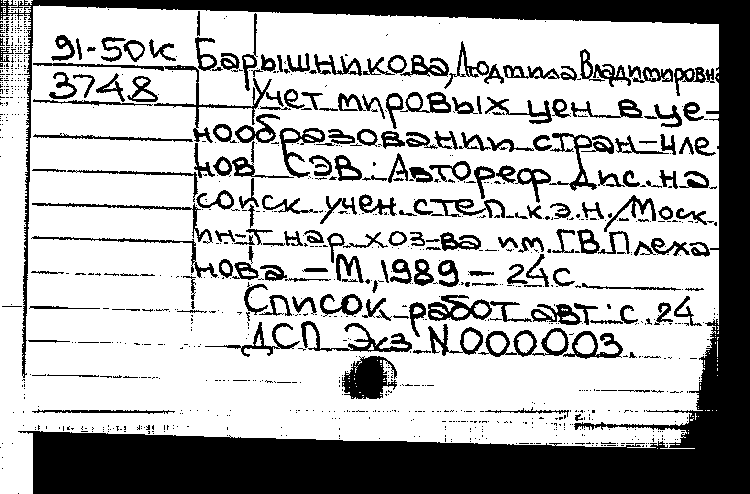 91-50к Барышникова, Людмила Владимировна
3748 Учет мировых цен в це-
нообразовании стран-чле-
нов СЭВ: Автореф. дис. на
соиск. учен. степ. к.э.н./Моск.
ин-т нар. хоз-ва им. Г.В. Плеха-
нова. - М., 1989. - 24с.
Список работ авт.: с. 24
ДСП Экз N 000003.